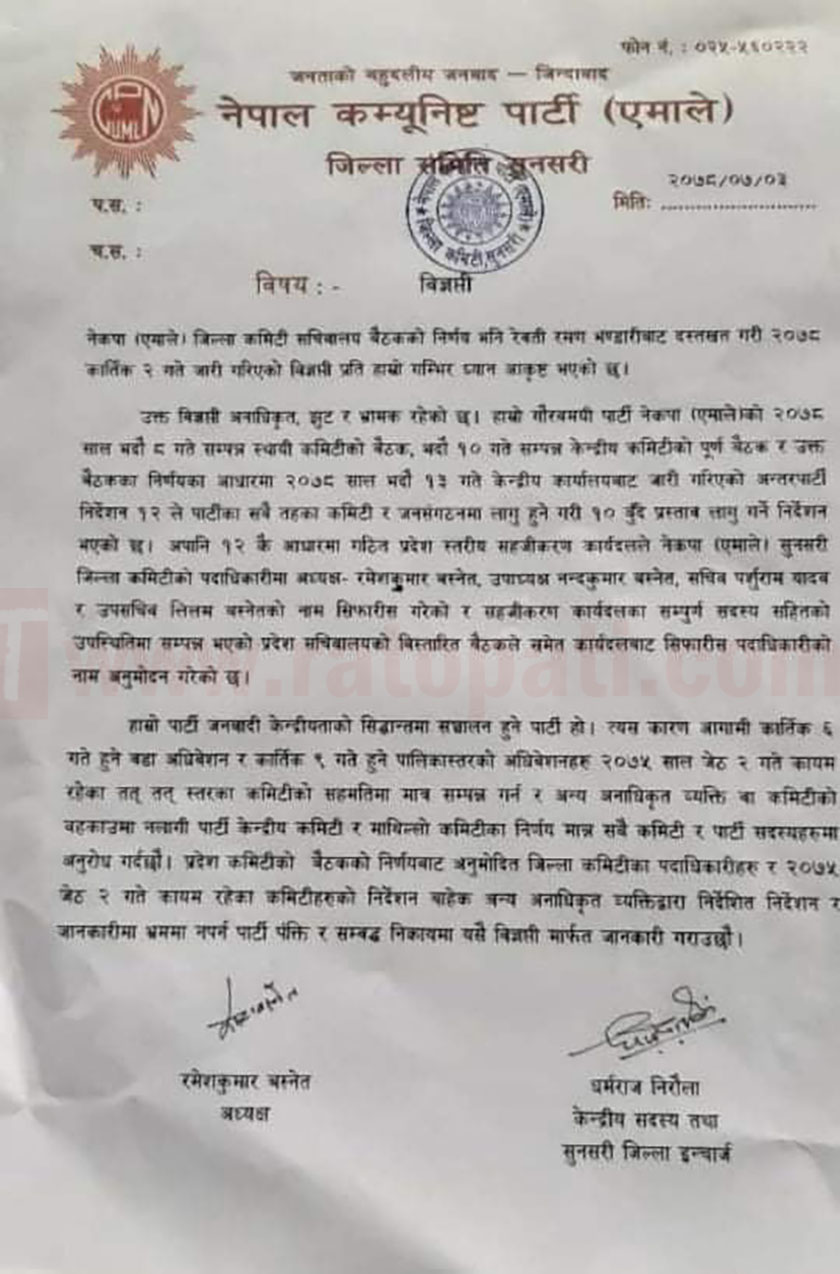 फोन नं. : ०२५-५६०२२२
जनताको बहुदलीय जनवाद — जिन्दावाद
CPN
UML
नेपाल कम्यूनिष्ट पार्टी (एमाले)
जिल्ला समिति सुनसरी
२०७८/०७/०३
प.स. :
मितिः ............................
च.स. :
विषय : - विज्ञप्ती
नेकपा (एमाले) जिल्ला कमिटी सचिवालय बैठकको निर्णय भनि रेवती रमण भण्डारीबाट दस्तखत गरी २०७८
कार्तिक २ गते जारी गरिएको विज्ञप्ती प्रति हाम्रो गम्भिर ध्यान आकृष्ट भएको छ।
उक्त विज्ञप्ती अनाधिकृत, झुट र भ्रामक रहेको छ। हाम्रो गौरवमयी पार्टी नेकपा (एमाले)को २०७८
साल भदौ ८ गते सम्पन्न स्थायी कमिटीको बैठक, भदौ १० गते सम्पन्न केन्द्रीय कमिटीको पूर्ण बैठक र उक्त
बैठकका निर्णयका आधारमा २०७८ साल भदौ १३ गते केन्द्रीय कार्यालयबाट जारी गरिएको अन्तरपार्टी
निर्देशन १२ ले पार्टीका सबै तहका कमिटी र जनसंगठनमा लागु हुने गरी १० बुँदे प्रस्ताव लागु गर्ने निर्देशन
भएको छ। अपानि १२ कै आधारमा गठित प्रदेश स्तरीय सहजीकरण कार्यदलले नेकपा (एमाले) सुनसरी
जिल्ला कमिटीको पदाधिकारीमा अध्यक्ष- रमेशकुमार बस्नेत, उपाध्यक्ष नन्दकुमार बस्नेत, सचिव पर्शुराम यादव
र उपसचिव तिलम बस्नेतको नाम सिफारीस गरेको र सहजीकरण कार्यदलका सम्पुर्ण सदस्य सहितको
उपस्थितिमा सम्पन्न भएको प्रदेश सचिवालयको विस्तारित बैठकले समेत कार्यदलबाट सिफारीस पदाधिकारीको
नाम अनुमोदन गरेको छ।
www.ratopati.com
हाम्रो पार्टी जनवादी केन्द्रीयताको सिद्धान्तमा सञ्चालन हुने पार्टी हो। त्यस कारण आगामी कार्तिक ६
गते हुने वडा अधिवेशन र कार्तिक ९ गते हुने पालिकास्तरको अधिवेशनहरु २०७५ साल जेठ २ गते कायम
रहेका तत् तत् स्तरका कमिटीको सहमतिमा मात्र सम्पन्न गर्न र अन्य अनाधिकृत व्यक्ति वा कमिटीको
वहकाउमा नलागी पार्टी केन्द्रीय कमिटी र माथिल्लो कमिटीका निर्णय मान्न सबै कमिटी र पार्टी सदस्यहरुमा
अनुरोध गर्दछौं। प्रदेश कमिटीको बैठकको निर्णयबाट अनुमोदित जिल्ला कमिटीका पदाधिकारीहरु र २०७५
जेठ २ गते कायम रहेका कमिटीहरुको निर्देशन बाहेक अन्य अनाधिकृत व्यक्तिद्वारा निर्देशित निर्देशन र
जानकारीमा भ्रममा नपर्न पार्टी पंक्ति र सम्बद्ध निकायमा यसै विज्ञप्ती मार्फत जानकारी गराउछौ।
रमेशकुमार बस्नेत
अध्यक्ष
धर्मराज निरौला
केन्द्रीय सदस्य तथा
सुनसरी जिल्ला इन्चार्ज